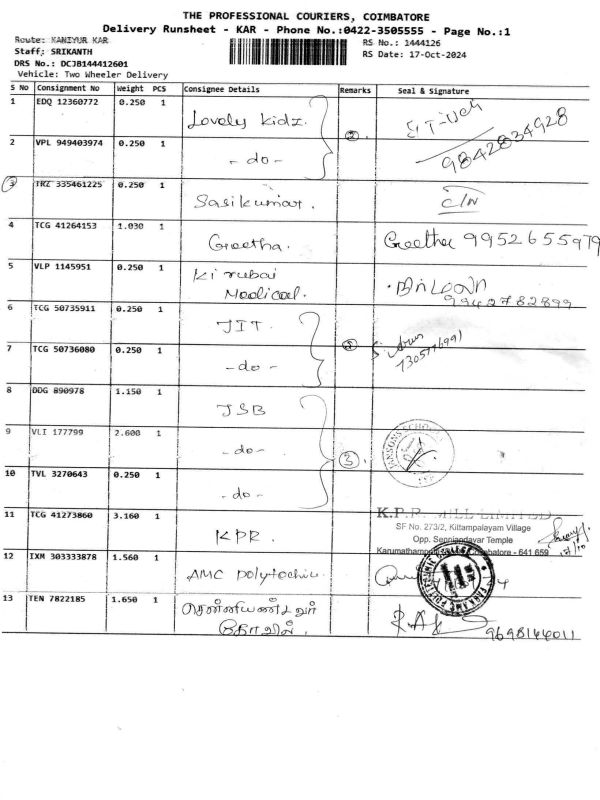 THE PROFESSIONAL COURIERS, COIMBATORE
Delivery Runsheet - KAR - Phone No.:0422-3505555 - Page No.:1
Route: KANIYUR KAR
RS No.: 1444126
Staff: SRIKANTH
RS Date: 17-Oct-2024
DRS No.: DCJB144412601
Vehicle: Two Wheeler Delivery
S No Consignment No Weight PCS Consignee Details Remarks Seal & Signature
1 EDQ 12360772 0.250 1 Lovely Kidz.
2 VPL 949403974 0.250 1 - do - ② 9842834928
3 TRZ 335461225 0.250 1 Sasikumar.
4 TCG 41264153 1.030 1 Geetha. Geetha 9952655979
5 VLP 1145951 0.250 1 Kirubai
Medical. 9942782899
6 TCG 50735911 0.250 1 JIT.
7 TCG 50736080 0.250 1 - do -
8 DDG 890978 1.150 1 JSB
9 VLI 177799 2.600 1 - do - ③.
10 TVL 3270643 0.250 1 - do -
11 TCG 41273860 3.160 1 KPR. K.P.R. MILL LIMITED
SF No. 273/2, Kittampalayam Village
Opp. Senniandavar Temple
Coimbatore - 641 659
17/10
12 IXM 303333878 1.560 1 AMC polytechnic
13 TEN 7822185 1.650 1 சென்னியாண்டவர்
கோவில். 9698144011